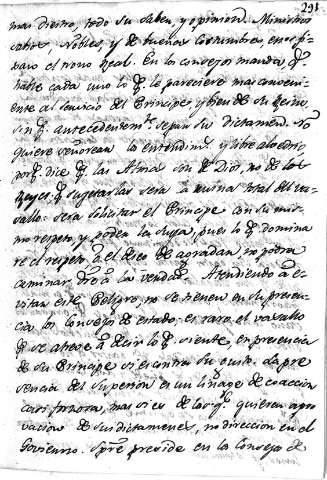 291
mas diestro, todo su saber, y opinion. Ministros
sabios, Nobles, y de buenas costumbres, en
el trono Real. En los consejos manda, q.e
hable cada uno lo q.e le pareciere mas conveni-
ente al servicio del Principe, y bien de su Reino,
sin q.e antecedentem.te sepan su dictamen. No
quiere señorear los entendim.s y libre alvedrio
porq.e dice q.e las Almas son de Dios, no de los
Reyes; q.e sugetarlas sería la ruina total del va-
sallo: sería solicitar el Principe con su mis-
mo respeto, y poder la suya, pues lo q.e domina
re el respeto, o el deseo de agradar, no podra
caminar dro. a la verdad. Atendiendo a e-
vitar este Peligro, no se tienen en su presen-
cia los Consejos de estado: es raro el vasallo
q.e se atreve a decir lo q.e siente, en presencia
de su Principe si es contra su gusto. La pre
sencia del Superior es un linage de coaccion
casi forzosa, mas si es de los q.e quieren apro
vacion de sus dictamenes, no direccion en el
Govierno. Spre preside en la Consejo de